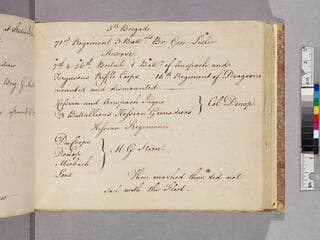 5th Brigade
71st Regiment 3 Battns Br. Genl Leslie
Reserve
7th & 26th British 1 Battn of Anspach and
Fergusons Riffle Corps 16th Regiment of Dragoons
mounted and dismounted
Hessian and Anspach Jagers
3 Battallions Hessian Grenadiers } Col. Donop.
Hessian Regiments
Du Corps
Donop
Mirbach
Loos
} M. G. Stern.
Those marked thus * did not
sail with the Fleet.